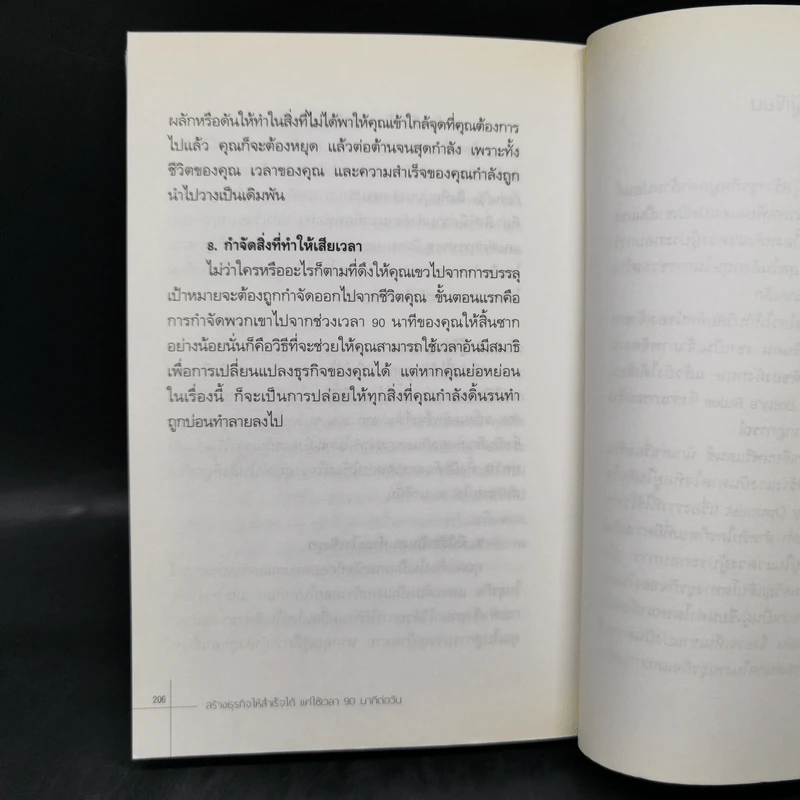 ผลักหรือดันให้ทำในสิ่งที่ไม่ได้พาให้คุณเข้าใกล้จุดที่คุณต้องการ
ไปแล้ว คุณก็จะต้องหยุด แล้วต่อต้านจนสุดกำลัง เพราะทั้ง
ชีวิตของคุณ เวลาของคุณ และความสำเร็จของคุณกำลังถูก
นำไปวางเป็นเดิมพัน
8. กำจัดสิ่งที่ทำให้เสียเวลา
ไม่ว่าใครหรืออะไรก็ตามที่ดึงให้คุณเขวไปจากการบรรลุ
เป้าหมายจะต้องถูกกำจัดออกไปจากชีวิตคุณ ขั้นตอนแรกคือ
การกำจัดพวกเขาไปจากช่วงเวลา 90 นาทีของคุณให้สิ้นซาก
อย่างน้อยนั่นก็คือวิธีที่จะช่วยให้คุณสามารถใช้เวลาอันมีสมาธิ
เพื่อการเปลี่ยนแปลงธุรกิจของคุณได้ แต่หากคุณย่อหย่อน
ในเรื่องนี้ ก็จะเป็นการปล่อยให้ทุกสิ่งที่คุณกำลังดิ้นรนทำ
ถูกบ่อนทำลายลงไป
206 สร้างธุรกิจให้สำเร็จได้ แค่ใช้เวลา 90 นาทีต่อวัน